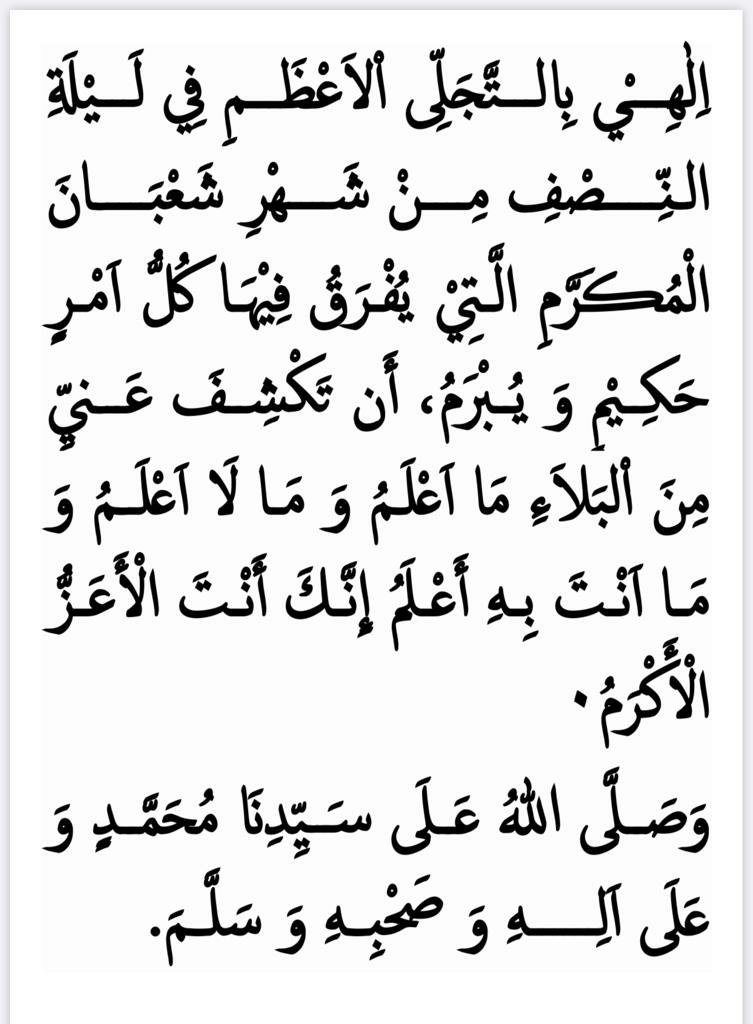 اِلٰهِــيْ بِالــتَّجَلِّى اْلاَعْظَــمِ فِي لَــيْلَةِ
النِّــصْفِ مِــنْ شَــهْرِ شَعْبَــانَ
الْمُكَرَّمِ الَّتِيْ يُفْرَقُ فِيْهَا كُلُّ اَمْرٍ
حَكِــيْمٍ وَ يُــبْرَمُ، أَن تَكْشِــفَ عَــنيِّ
مِنَ اْلبَلاَءِ مَا اَعْلَمُ وَ مَا لَا اَعْلَــمُ وَ
مَا اَنْتَ بِهِ أَعْلَمُ إِنَّكَ أَنْتَ الْأَعَزُّ
الْأَكْرَمُ۰
وَصَــلَّى اللهُ عَــلَى سَــيِّدِنَا مُحَمَّــدٍ وَ
عَلَى اَلِــهِ وَ صَحْبِــهِ وَ سَلَّــمَ.